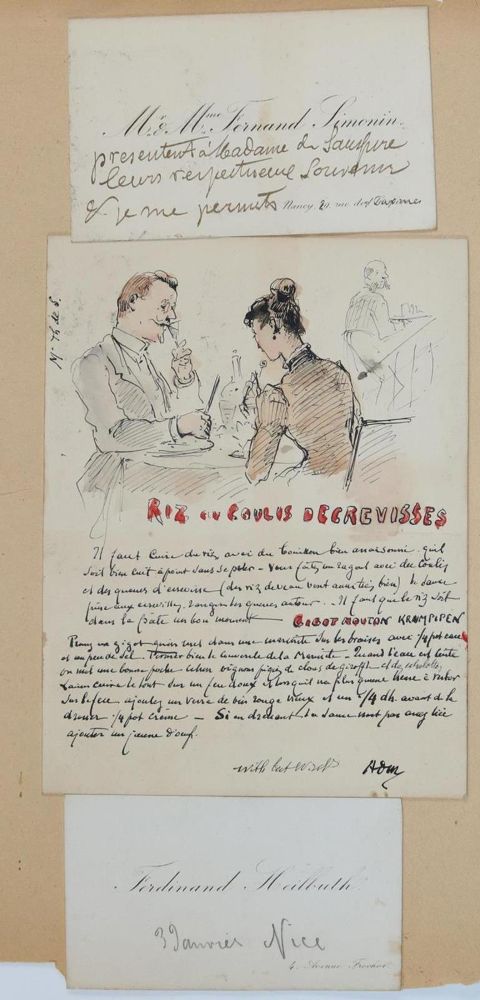 Mr & Mme Fernand Simonin
presentent à Madame de Saussure
leurs respectueux Souvenir
& je me permets Nancy, 29, rue des
RIZ au COULIS DECREVISSES
Il faut Cuire du riz avec du bouillon bien assaisonné qu'il
soit bien cuit à point sans Vous faites un ragout avec du Coulis
et des queues d'ecrevisse (du riz de veau vont aussi très bien) la Sauce
les queues autour Il faut que le riz soit
dans la un bon moment
GIGOT MOUTON KRAMPIPEN
Prenez un gigot mis dans une marmite sur les braises avec 1/4 pot eau
et un peu de Sel bien le Couvercle de la Marmite Quand l'eau est
on met une bonne oignons piqué de clous de giroffle
Laisser cuire le tout sur un feu doux & lorsqu'il n'a plus que une heure à rester
sur le feu ajoutez un verre de bin rouge vieux et un 1/4 dh. avant de le
dresser 1/4 pot creme — Si en dressant la Sauce n'est pas assez liée
ajouter un jaune d'oeuf.
with best wishes
Ferdinand Heilbuth
3 Janvier Nice
4, Avenue Frochot